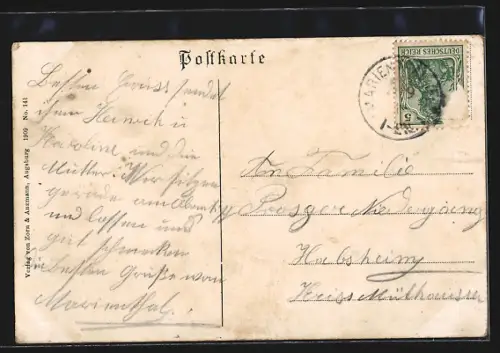 Postkarte
DEUTSCHES REICH
5
MARIEN
Besten Gruss sendet
Heinrich u
Karoline und die
Mutter. Wir sitzen
gerade am
und lassen uns
gut schmecken
Besten Grüße von
Marienthal.
An Familie
Habsheim
Kreis Mülhausen
Verlag von Zorn & Anzmann, Augsburg 1909 No. 141